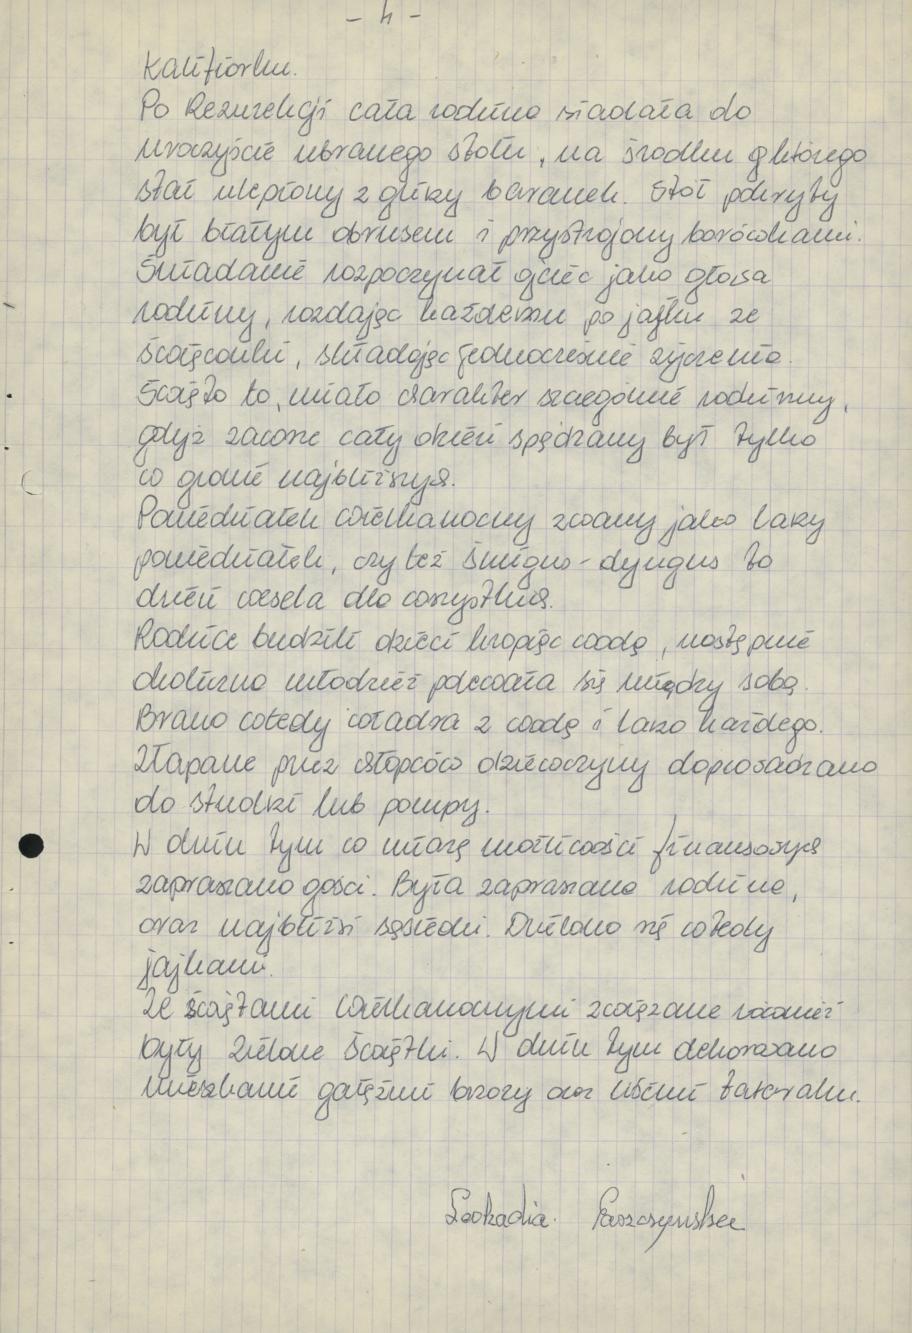 - 4 -
Kalifiorku.
Po Rezurekcji cała rodzina siadała do
uroczyście ubranego stołu, na środku którego
stał ulepiony z gliny baranek. Stół pokryty
był białym obrusem i przystrojony borówkami.
Śniadanie rozpoczynał ojciec jako głowa
rodziny, rozdając każdemu po jajku ze
święconki, składając jednocześnie życzenia.
Święto to, miało charakter szczególnie rodzinny,
gdyż zawsze cały dzień spędzany był tylko
w gronie najbliższych.
Poniedziałek Wielkanocny zwany jako lany
poniedziałek, czy też śmigus-dyngus to
dzień wesela dla wszystkich.
Rodzice budzili dzieci kropiąc wodą, następnie
okoliczna młodzież polewała się między sobą.
Brano wtedy wiadra z wodą i lano każdego.
Złapane przez chłopców dziewczyny doprowadzano
do studni lub pompy.
W dniu tym w miarę możliwości finansowych
zapraszano gości. Była zapraszana rodzina,
oraz najbliżsi sąsiedzi. Dzielono się wtedy
jajkami.
Ze świętami Wielkanocnymi związane również
były Zielone Świątki. W dniu tym dekorowano
mieszkanie gałęźmi brzozy oraz liśćmi tataraku.
Leokadia